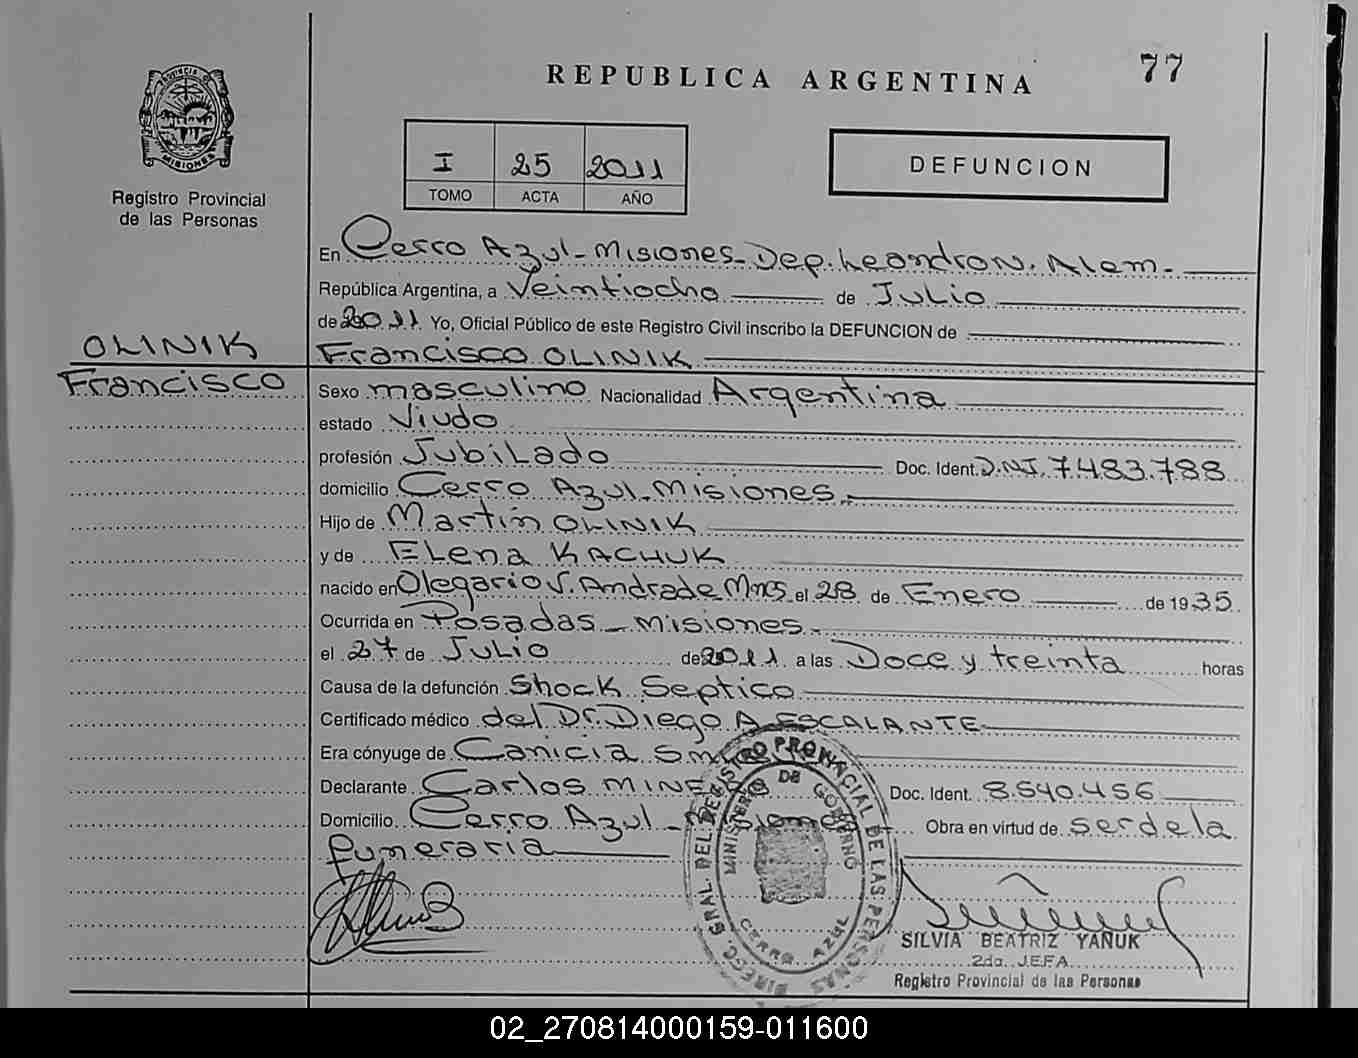 REPUBLICA ARGENTINA
77
PROVINCIA DE
MISIONES
Registro Provincial
de las Personas
I 25 2011
TOMO ACTA AÑO
DEFUNCION
En Cerro Azul - Misiones - Dep. Leandro N. Alem -
República Argentina, a Veintiocho de Julio
de 2011 Yo, Oficial Público de este Registro Civil inscribo la DEFUNCION de
OLINIK
Francisco OLINIK
Francisco
Sexo masculino Nacionalidad Argentina
estado Viudo
profesión Jubilado Doc. Ident. D.N.I. 7.483.788
domicilio Cerro Azul - Misiones -
Hijo de Martín OLINIK
y de ELena KACHUK
nacido en Olegario V. Andrade Mnes el 28 de Enero de 1935
Ocurrida en Posadas - Misiones -
el 27 de Julio de 2011 a las Doce y treinta horas
Causa de la defunción Shock Septico
Certificado médico del Dr. Diego A. ESCALANTE
Era cónyuge de Canicia
Declarante Carlos Doc. Ident. 8.540.456
Domicilio Cerro Azul - Obra en virtud de ser de la
funeraria
DIREC. GRAL. DEL REGISTRO PROVINCIAL DE LAS PERSONAS
MINISTERIO DE GOBIERNO
CERRO AZUL
SILVIA BEATRIZ YAÑUK
2da. JEFA
Registro Provincial de las Personas
02_270814000159-011600